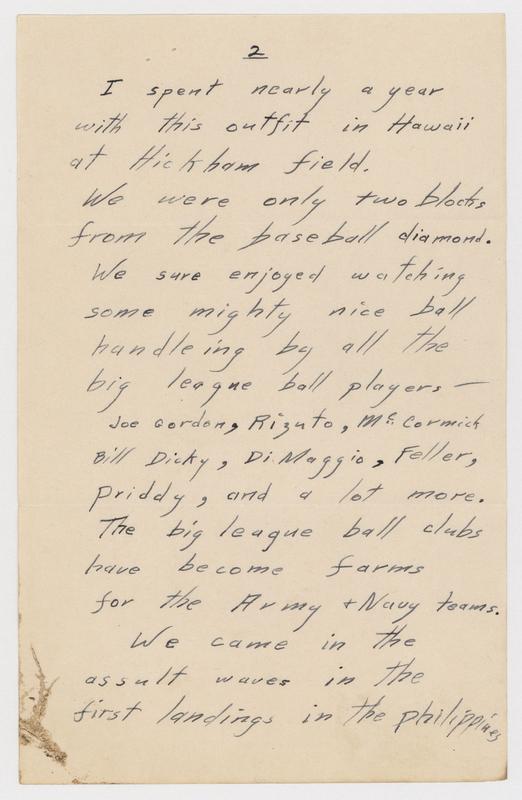 2
I spent nearly a year
with this outfit in Hawaii
at Hickham field.
We were only two blocks
from the baseball diamond.
We sure enjoyed watching
some mighty nice ball
handleing by all the
big league ball players —
Joe Gordon, Rizuto, McCormick
Bill Dicky, Di Maggio, Feller,
Priddy, and a lot more.
The big league ball clubs
have become farms
for the Army + Navy teams.
We came in the
assult waves in the
first landings in the Philippines